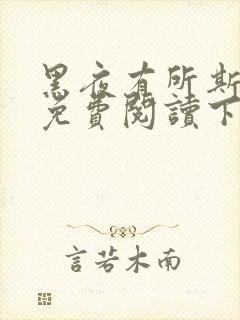 黑夜有所斯
免費閱讀下
言若木南